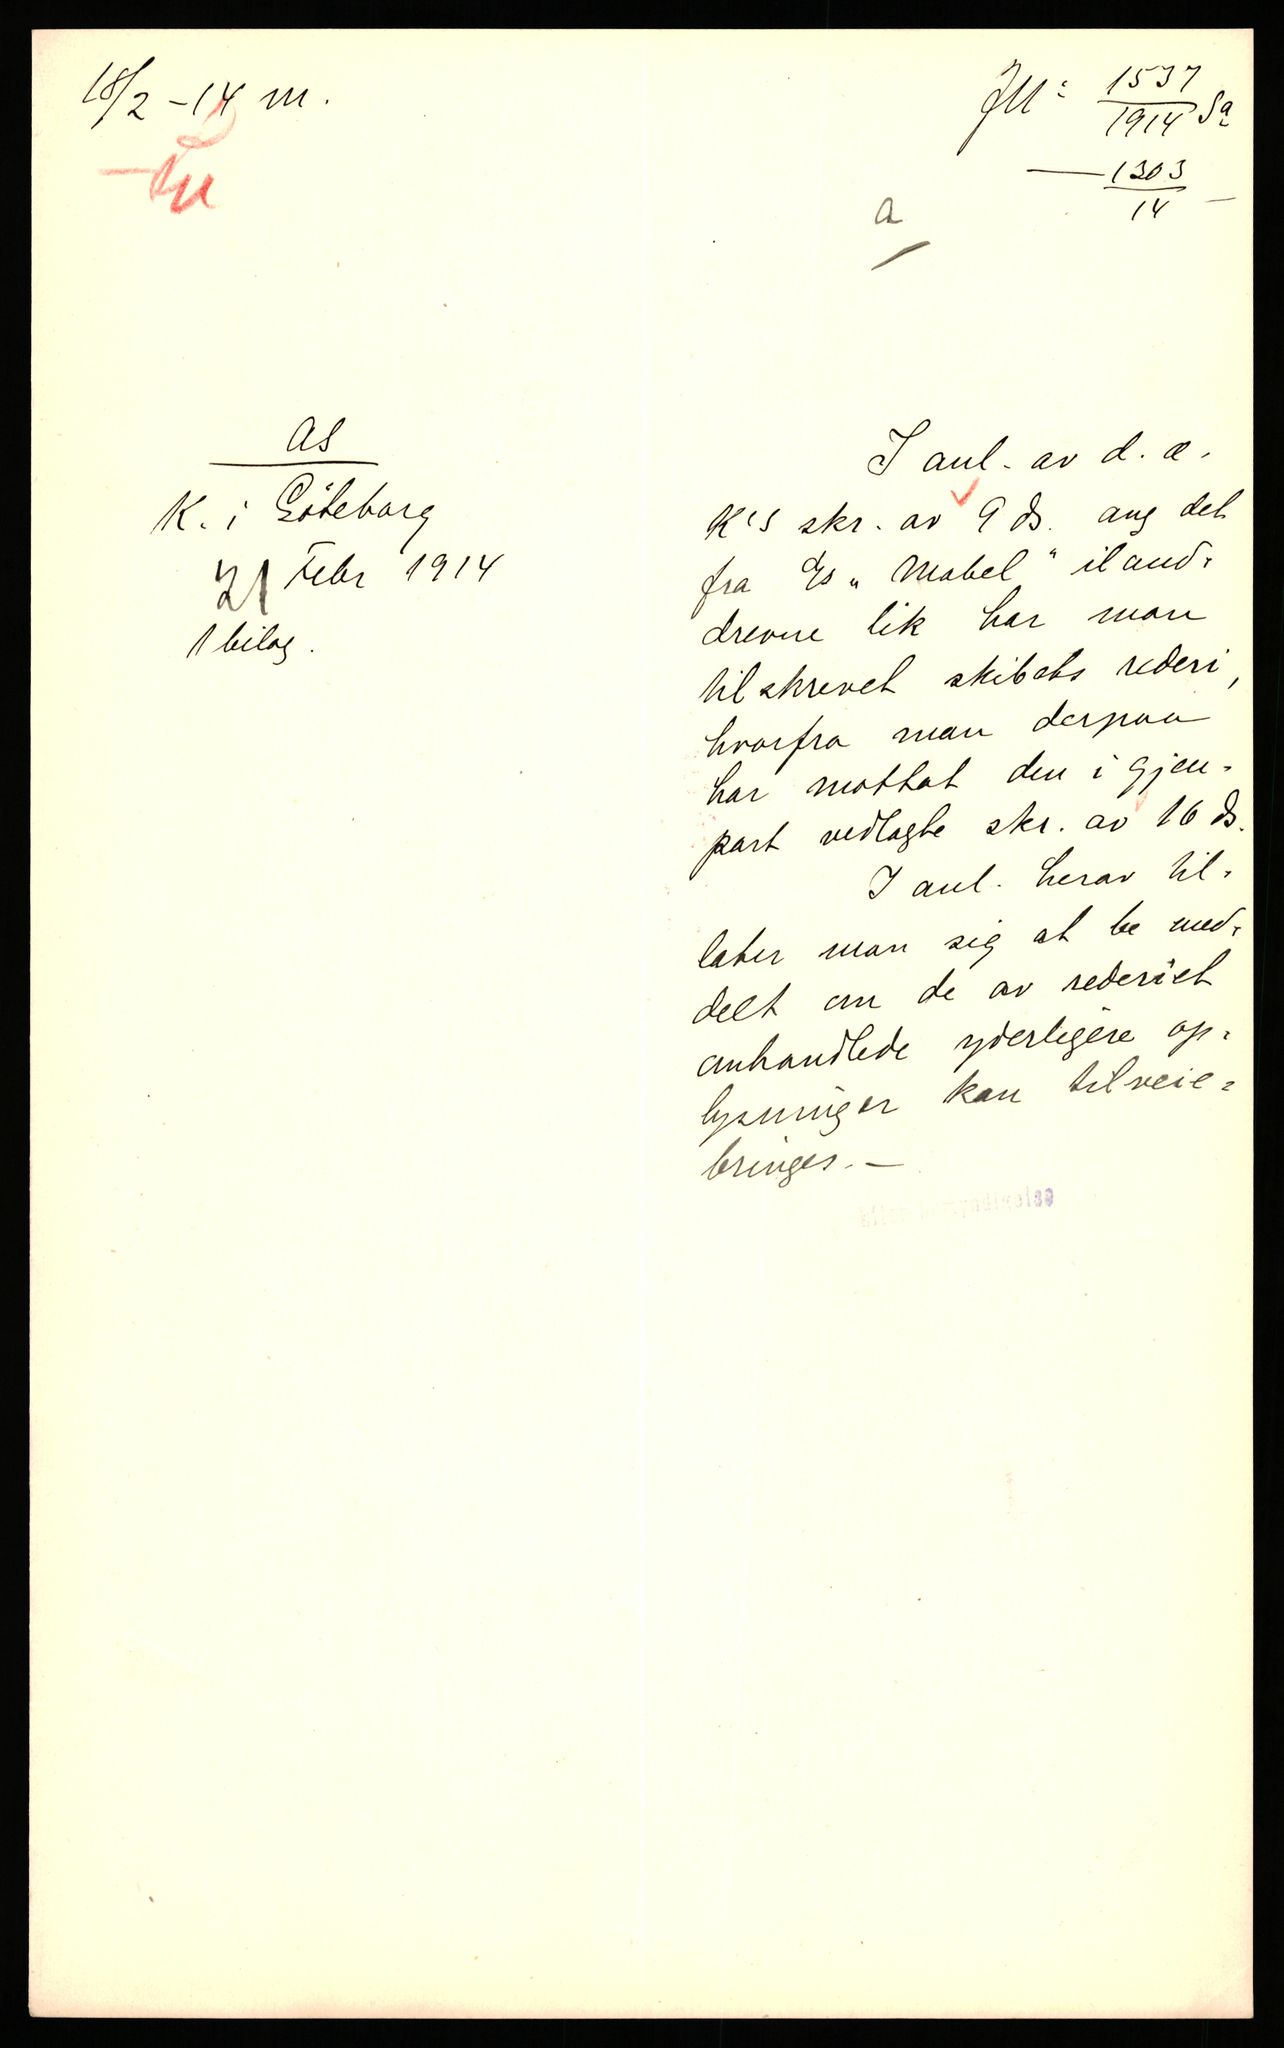 18/2 - 14 m.
JN: 1537/1914 Sa
— 1303/14 —
a
AS
K. i Göteborg
21 Febr 1914
1 bilag.
I anl. av d. æ.
K's skr. av 9 ds. ang det
fra D/s „Mabel" iland-
drevne lik har man
tilskrevet skibets rederi,
hvorfra man derpaa
har mottat den i gjen-
part vedlagte skr. av 16 ds.
I anl. herav til-
later man sig at be med-
delt om de av rederiet
omhandlede yderligere op-
lysninger kan tilveie-
bringes. —
Efter bemyndigelse